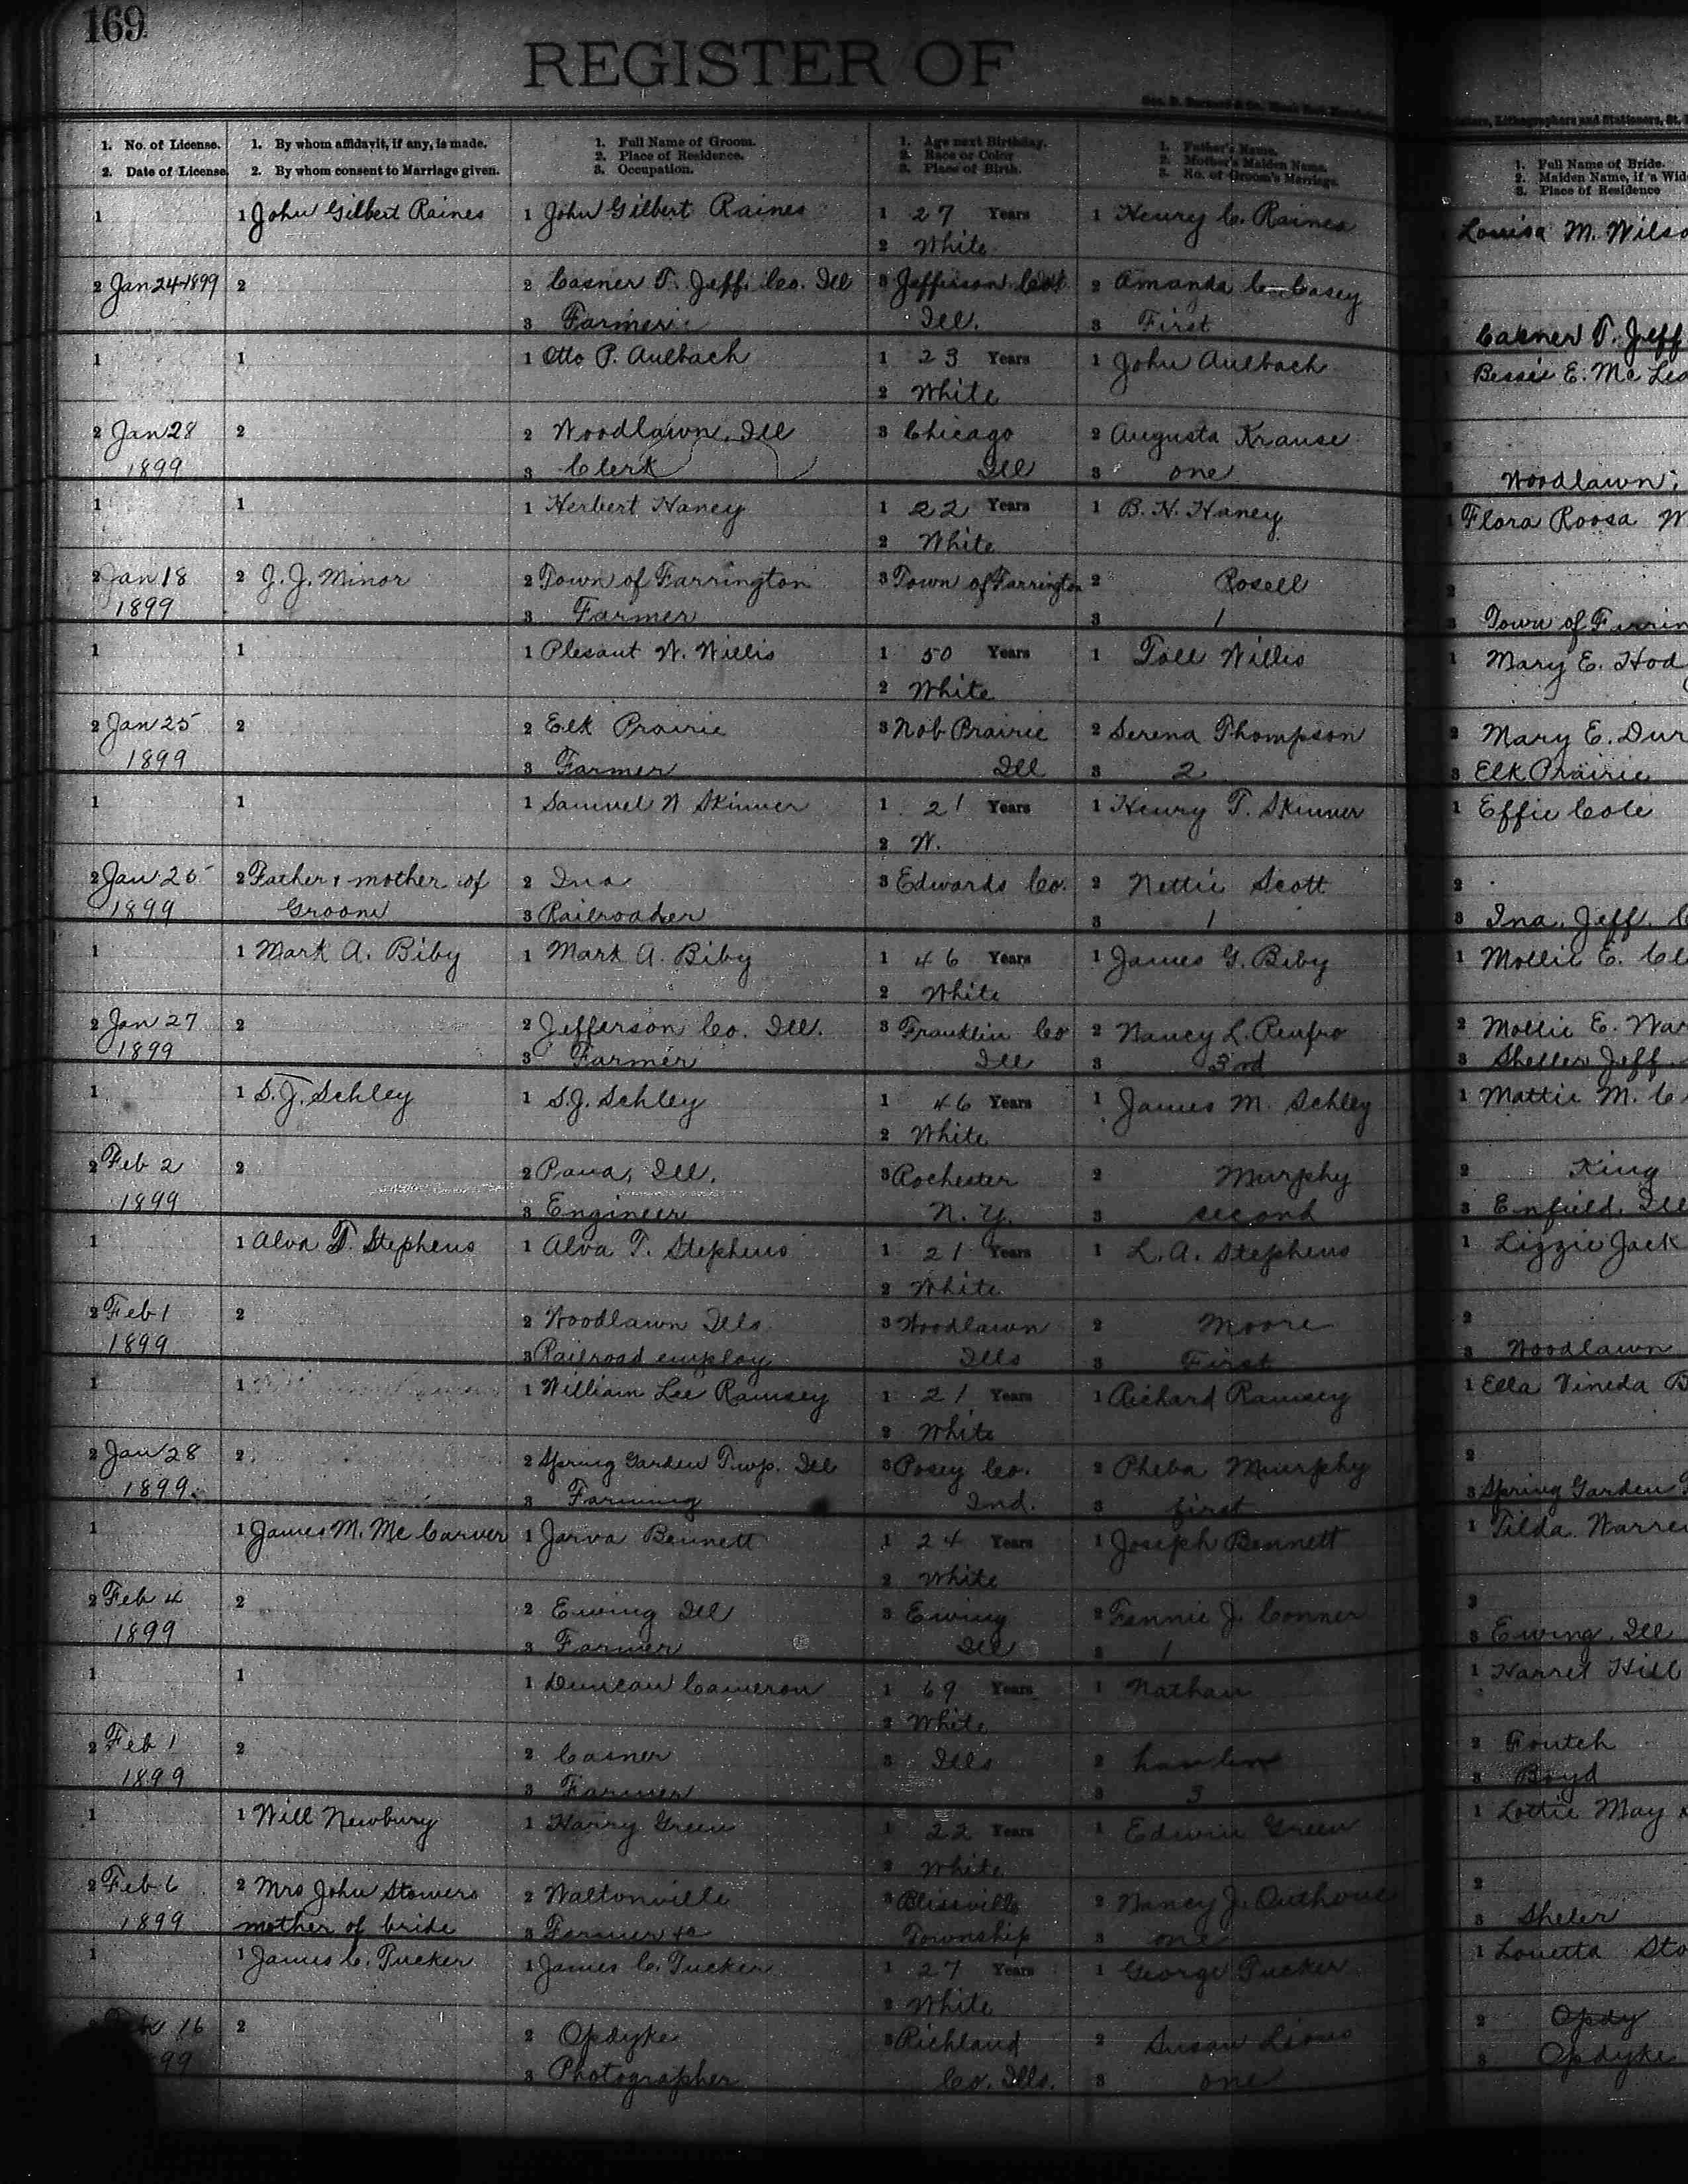 169
REGISTER OF
1. No. of License. 1. By whom affidavit, if any, is made. 1. Full Name of Groom. 1. Age next Birthday. 1. Father's Name. 1. Full Name of Bride.
2. Place of Residence. 2. Race or Color 2. Mother's Maiden Name. 2. Maiden Name, if a Wid
2. Date of License. 2. By whom consent to Marriage given. 3. Occupation. 3. Place of Birth. 3. No. of Groom's Marriage. 3. Place of Residence
1 1 John Gilbert Raines 1 John Gilbert Raines 1 27 Years 1 Henry C. Raines Louisa M. Wilso
2 White
2 Jan 24-1899 2 2 Casner T. Jeff. Co. Ill 3 Jefferson 2 Amanda C. Casey
3 Farmer Ill. 3 First Casner T. Jeff
1 1 1 Otto P. Aulbach 1 23 Years 1 John Aulbach Bessie E. Mc
2 White
2 Jan 28 2 2 Woodlawn, Ill 3 Chicago 2 Augusta Krause
1899 3 Clerk Ill 3 one Woodlawn,
1 1 1 Herbert Haney 1 22 Years 1 B. H. Haney 1 Flora Roosa W
2 White
2 Jan 18 2 J. J. Minor 2 Town of Farrington 3 Town of Farrington 2 Rosell 2
1899 3 Farmer 3 1 3 Town of Farrin
1 1 1 Plesant W. Willis 1 50 Years 1 Willis 1 Mary E. Hod
2 White
2 Jan 25 2 2 Elk Prairie 3 Nob Prairie 2 Serena Thompson 2 Mary E. Dur
1899 3 Farmer Ill 3 2 3 Elk Prairie
1 1 1 Samuel W Skinner 1 21 Years 1 Henry T. Skinner 1 Effie Cole
2 W.
2 Jan 2 Father & mother of 2 Ina 3 Edwards Co. 2 Nettie Scott 2
1899 Groom 3 Railroader 3 1 3 Ina, Jeff. C
1 1 Mark A. Biby 1 Mark A. Biby 1 46 Years 1 James G. Biby 1 Mollie E. Cl
2 White
2 Jan 27 2 2 Jefferson Co. Ill. 3 Franklin Co 2 Nancy L. Renfro 2 Mollie E. War
1899 3 Farmer Ill 3 3rd 3 Sheller Jeff.
1 1 S. J. Schley 1 S. J. Schley 1 46 Years 1 James M. Schley 1 Mattie M. C
2 White
2 Feb 2 2 2 Pana, Ill. 3 Rochester 2 Murphy 2 King
1899 3 Engineer N. Y. 3 second 3 Enfield, Ill
1 1 Alva T. Stephens 1 Alva T. Stephens 1 21 Years 1 L. A. Stephens 1 Lizzie Jack
2 White
2 Feb 1 2 2 Woodlawn Ills 3 Woodlawn 2 Moore 2
1899 3 Railroad employ Ills 3 First 3 Woodlawn
1 1 1 William Lee Ramsey 1 21 Years 1 Richard Ramsey 1 Ella Vineda B
2 White
2 Jan 28 2 2 Spring Garden Twp. Ill 3 Posey Co. 2 Pheba Murphy 2
1899 3 Farming Ind. 3 first 3 Spring Garden
1 1 James M. McCarver 1 Jarva Bennett 1 24 Years 1 Joseph Bennett 1 Tilda Warre
2 White
2 Feb 4 2 2 Ewing Ill 3 Ewing 2 Fennie J. Conner
1899 3 Farmer Ill 3 1 3 Ewing, Ill
1 1 1 Duncan Cameron 1 69 Years 1 Nathan 1 Harret Hill
2 White
2 Feb 1 2 2 Casner 3 Ills 2 2 Foutch
1899 3 Farmer 3 3 3 Boyd
1 1 Will Newbury 1 Harry Green 1 22 Years 1 Edwin Green 1 Lottie May
2 White
2 Feb 6 2 Mrs John Stowers 2 Waltonville 3 Blissville 2 Nancy J. Outhouse 2
1899 mother of bride 3 Farmer &c Township 3 one 3 Sheler
1 1 James C. Tucker 1 James C. Tucker 1 27 Years 1 George Tucker 1 Louetta Sto
2 White
16 2 2 Opdyke 3 Richland 2 Susan 2 Opdy
99 3 Photographer Co. Ills. 3 one 3 Opdyke